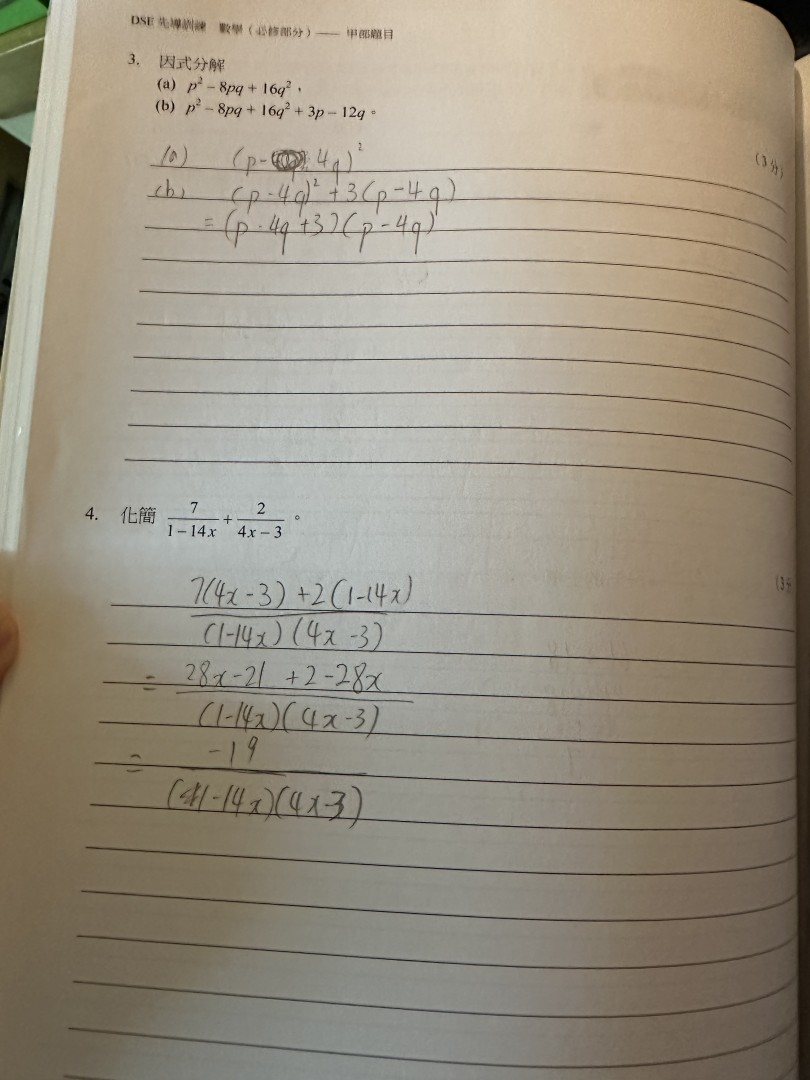 DSE 先導訓練 數學（必修部分）—— 甲部題目
3. 因式分解
(a) p² − 8pq + 16q²，
(b) p² − 8pq + 16q² + 3p − 12q。
(3分)
(a) (p- 4q)²
(b) (p-4q)² +3(p-4q)
=(p-4q+3)(p-4q)
4. 化簡 7/(1−14x) + 2/(4x−3)。
(3分
7(4x-3)+2(1-14x)
(1-14x)(4x-3)
= 28x-21 +2-28x
(1-14x)(4x-3)
= -19
(1-14x)(4x-3)